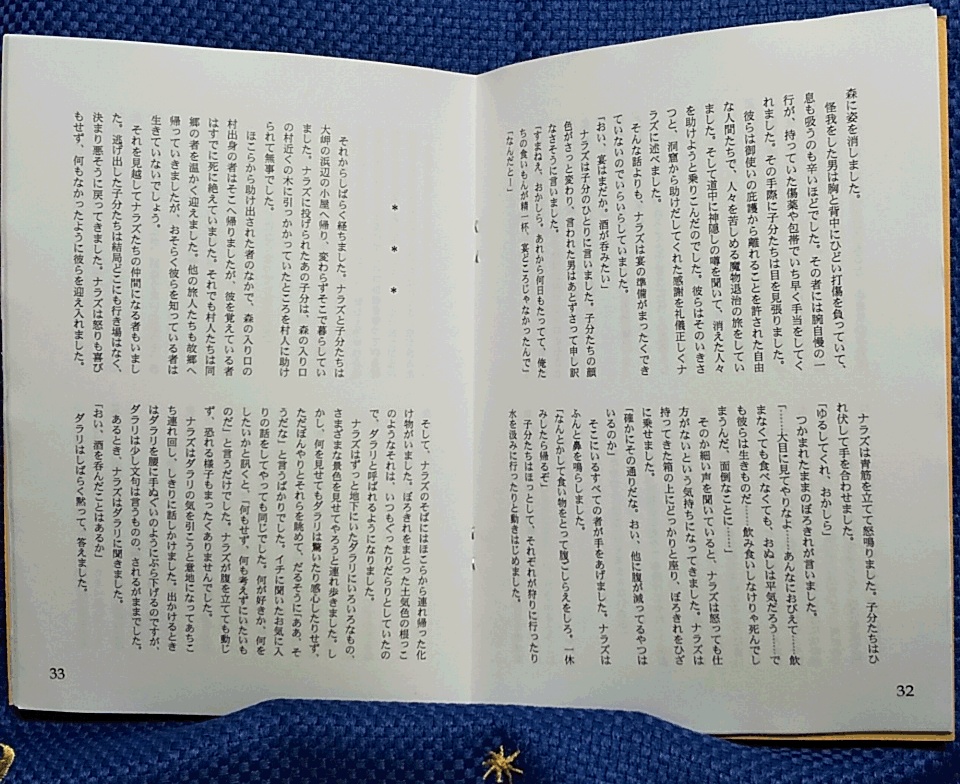 森に姿を消しました。
怪我をした男は胸と背中にひどい打傷を負っていて、
息も吸うのも辛いほどでした。その者には腕自慢の一
行が、持っていた傷薬や包帯でいち早く手当をしてく
れました。その手際に子分たちは目を見張りました。
彼らは御使いの庇護から離れることを許された自由
な人間たちで、人々を苦しめる魔物退治の旅をしてい
ました。そして道中に神隠しの噂を聞いて、消えた人々
を助けようと乗りこんだのでした。彼らはそのいきさ
つと、洞窟から助けだしてくれた感謝を礼儀正しくナ
ラズに述べました。
そんな話よりも、ナラズは宴の準備がまったくでき
ていないのでいらいらしていました。
「おい、宴はまだか。酒が呑みたい」
ナラズは子分のひとりに言いました。子分たちの顔
色がさっと変わり、言われた男はあとずさって申し訳
なさそうに言いました。
「すまねえ、おかしら。あれから何日もたって、俺た
ちの食いもんが精一杯、宴どころじゃなかったんで」
「なんだと！」
ナラズは青筋を立てて怒鳴りました。子分たちはひ
れ伏して手を合わせました。
「ゆるしてくれ、おかしら」
つかまれたままのぼろきれが言いました。
「……大目に見てやりなよ……あんなにおびえて……飲
まなくても食べなくても、おぬしは平気だろう……で
も彼らは生きものだ……飲み食いしなけりゃ死んでし
まうんだ、面倒なことに……」
そのか細い声を聞いていると、ナラズは怒っても仕
方がないという気持ちになってきました。ナラズは
持ってきた箱の上にどっかりと座り、ぼろきれをひざ
に乗せました。
「確かにその通りだな。おい、他に腹が減ってるやつは
いるのか」
そこにいるすべての者が手をあげました。ナラズは
ふんと鼻を鳴らしました。
「なんとかして食い物をとって腹ごしらえをしろ。一休
みしたら帰るぞ」
子分たちはほっとして、それぞれが狩りに行ったり
水を汲みに行ったりと動きはじめました。
32
＊　＊　＊
それからしばらく経ちました。ナラズと子分たちは
大岬の浜辺の小屋へ帰り、変わらずそこで暮らしてい
ました。ナラズに投げられたあの子分は、森の入り口
の村近くの木に引っかかっていたところを村人に助け
られて無事でした。
ほこらから助け出された者のなかで、森の入り口の
村出身の者はそこへ帰りましたが、彼を覚えている者
はすでに死に絶えていました。それでも村人たちは同
郷の者を温かく迎えました。他の旅人たちも故郷へ
帰っていきましたが、おそらく彼らを知っている者は
生きていないでしょう。
それを見越してナラズたちの仲間になる者もいまし
た。逃げ出した子分たちは結局どこにも行き場はなく、
決まり悪そうに戻ってきました。ナラズは怒りも喜び
もせず、何もなかったように彼らを迎え入れました。
そして、ナラズのそばにはほこらから連れ帰った化
け物がいました。ぼろきれをまとった土気色の根っこ
のようなそれは、いつもぐったりだらりとしていたの
で、ダラリと呼ばれるようになりました。
ナラズはずっと地下にいたダラリにいろいろなもの、
さまざまな景色を見せてやろうと連れ歩きました。し
かし、何を見せてもダラリは驚いたり感心したりせず、
ただぼんやりとそれらを眺めて、だるそうに「ああ、そ
うだな」と言うばかりでした。イチに聞いたお気に入
りの話をしてやっても同じでした。何が好きか、何を
したいかと訊くと、「何もせず、何も考えずにいたいも
のだ」と言うだけでした。ナラズが腹を立てても動じ
ず、恐れる様子もまったくありませんでした。
ナラズはダラリの気を引こうと意地になってあちこ
ち連れ回し、しきりに話しかけました。出かけるとき
はダラリを腰に手ぬぐいのようにぶら下げるのですが、
ダラリは少し文句は言うものの、されるがままでした。
あるとき、ナラズはダラリに聞きました。
「おい、酒を呑んだことはあるか」
ダラリはしばらく黙って、答えました。
33